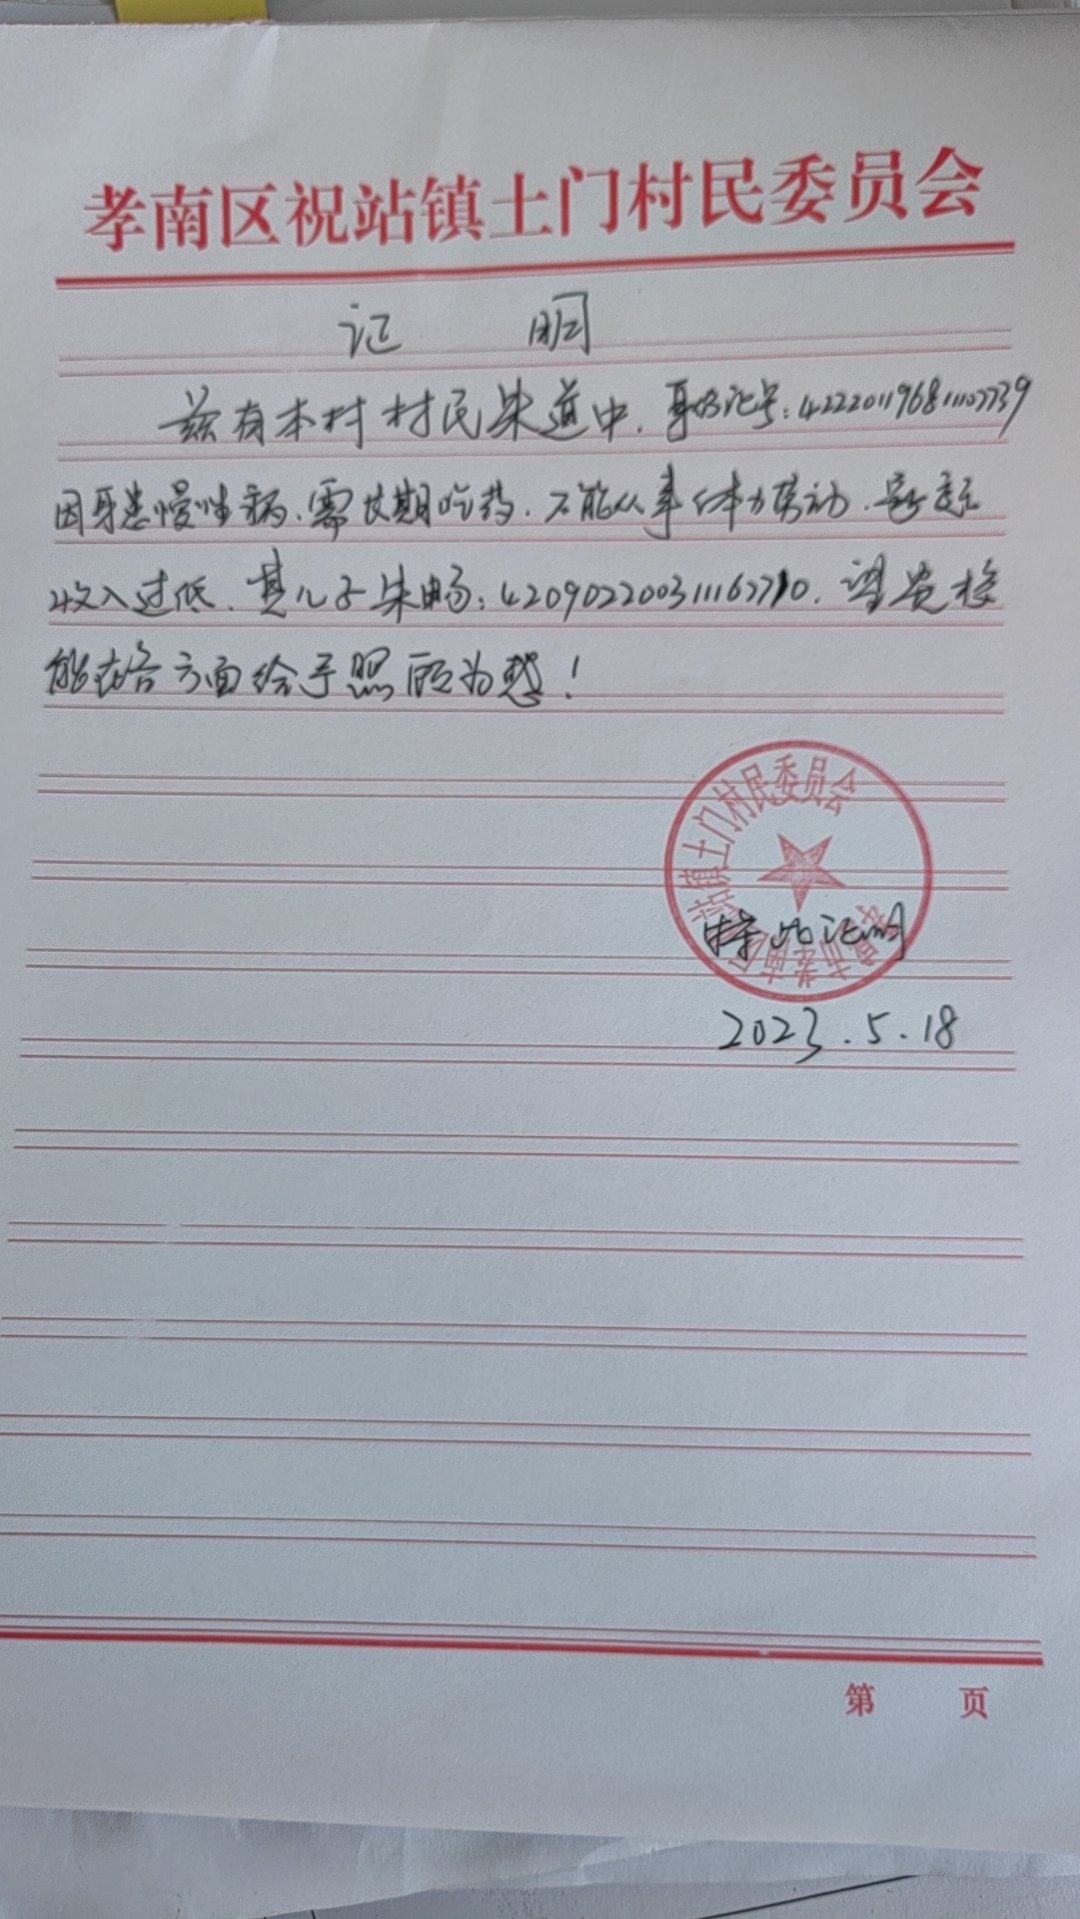 孝南区祝站镇土门村民委员会
证 明
兹有本村村民朱道中，身份证号：
因牙患慢性病、需长期吃药、不能从事体力劳动、家庭
收入过低、其儿子朱畅：420902200311167710，望贵校
能在各方面给予照顾为感！
站镇土门村民委员会
特此证明
2023.5.18
第 页